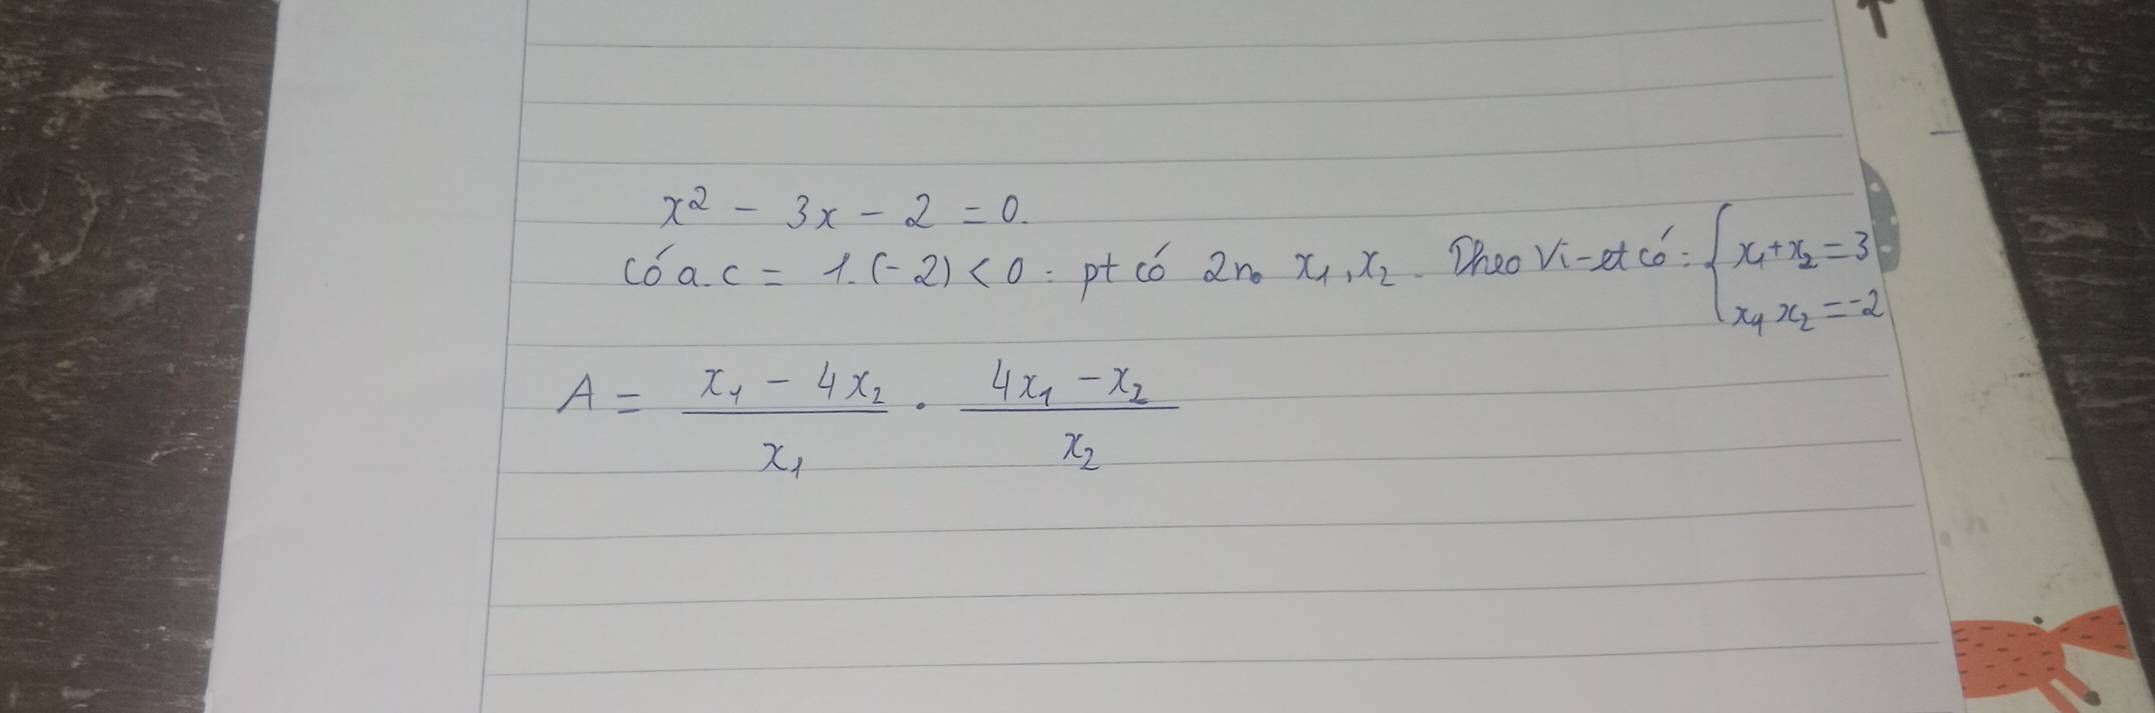 x² - 3x - 2 = 0.
Có a.c = 1.(-2) < 0 : pt có 2no x₁, x₂. Theo Vi-et có : { x₁ + x₂ = 3
x₁ x₂ = -2
A = (x₁ - 4x₂)/x₁ . (4x₁ - x₂)/x₂